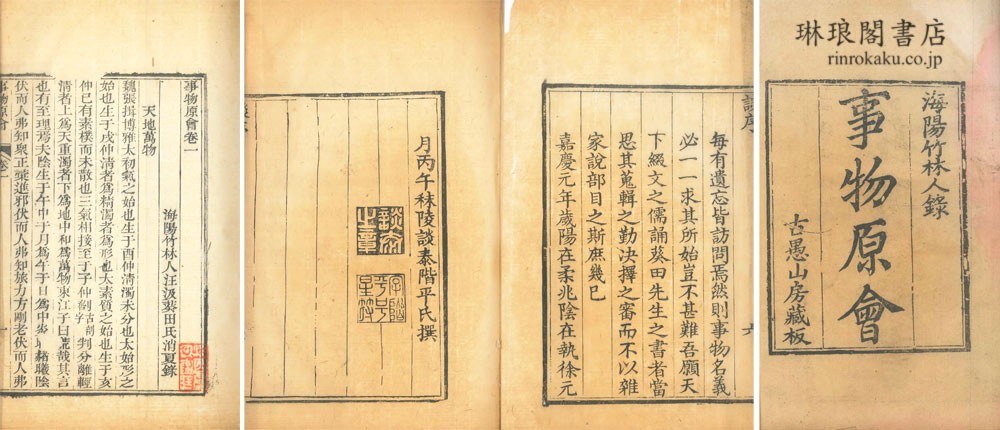 琳琅閣書店
rinrokaku.co.jp
海陽竹林人錄
事物原會
古愚山房藏板
談序
每有遺忘皆訪問焉然則事物名義
必一一求其所始豈不甚難吾願天
下綴文之儒誦葵田先生之書者當
思其蒐輯之勤決擇之審而不以雜
家說部目之斯庶幾已
嘉慶元年歲陽在柔兆陰在執徐元
六
月丙午秣陵談泰階平氏撰
談泰之章
事物原會卷一
海陽竹林人汪汲葵田氏消夏錄
天地萬物
魏張揖博雅太初氣之始也生于酉仲清濁未分也太始形之
始也生于戌仲清者為精濁者為形也太素質之始也生于亥
仲已有素樸而未散也三氣相接至于子仲剖判分離輕
清者上為天重濁者下為地中和為萬物東江子曰荒哉其言
也有至理焉夫陰生于午中于月為午于日為中
伏而人弗知與正乘進邪伏而人弗知旅力方剛老伏而人弗
事物原會
卷一
一